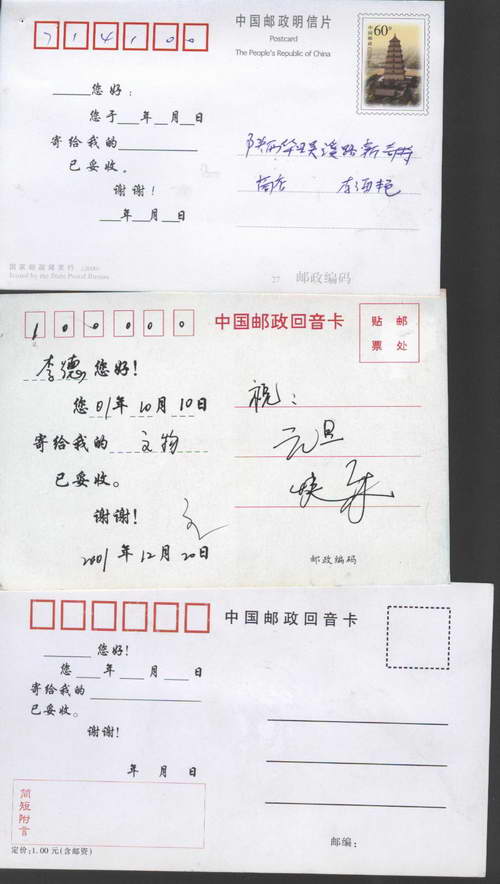 714100
中国邮政明信片
Postcard
The People's Republic of China
中国邮政
60分
您好:
您于 年 月 日
寄给我的
已妥收。
谢谢!
年 月 日
陕西华县 溪路新奇特
商店
国家邮政局发行 (2000)
Issued by the State Postal Bureau
27 邮政编码
100000
中国邮政回音卡
贴邮
票处
李德 您好!
您01年10月10日
寄给我的 文物
已妥收。
谢谢!
2001年12月20日
祝:
元旦
快乐
邮政编码
中国邮政回音卡
您好!
您 年 月 日
寄给我的
已妥收。
谢谢!
年 月 日
简短附言
定价:1.00元(含邮资)
邮编: